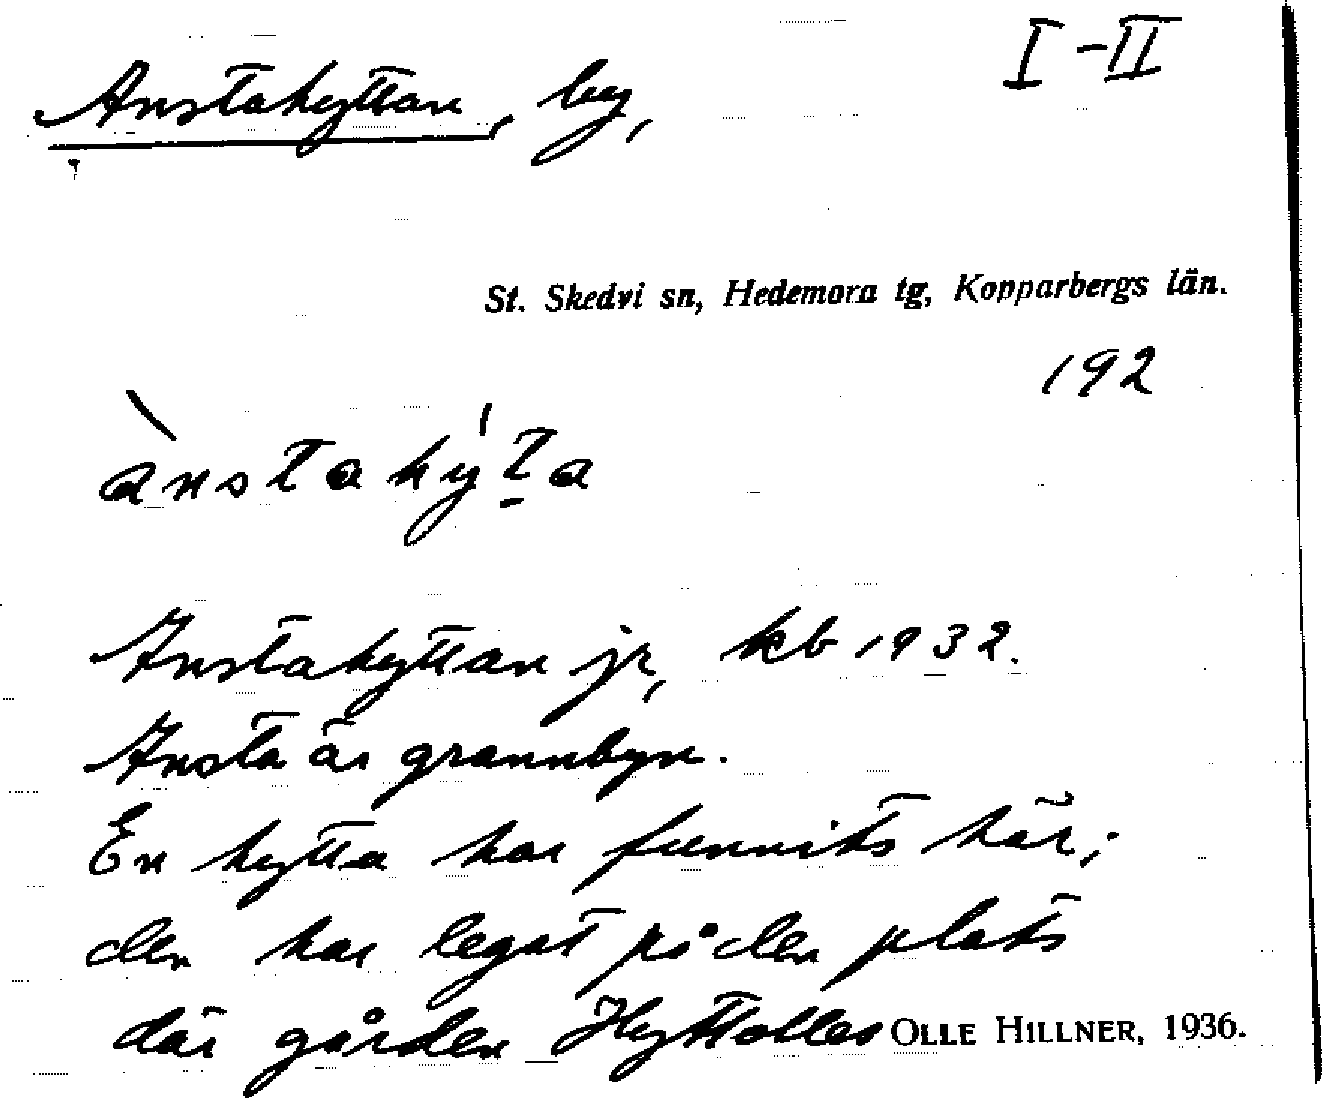 I-II
Anstahyttan, by,
St. Skedvi sn, Hedemora tg, Kopparbergs län.
192
ànstahýt̠a
Anstahyttan jr, kb 1932.
Ansta är grannbyn.
En hytta har funnits här;
den har legat på den plats
där gården Hyttolles
OLLE HILLNER, 1936.